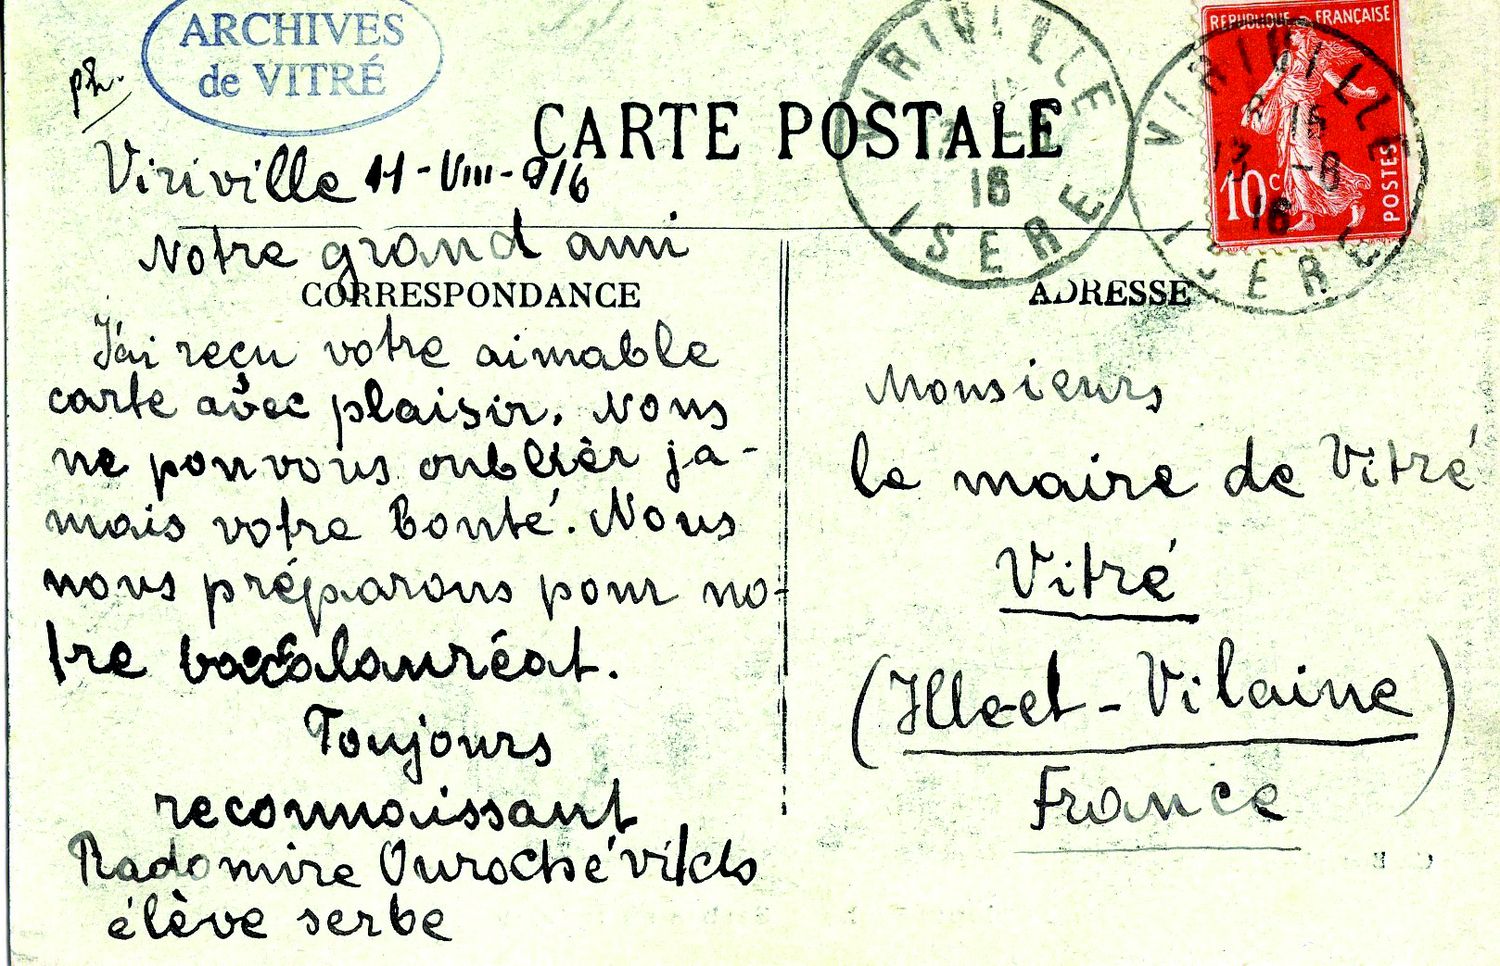 ARCHIVES
de VITRÉ
ph.
CARTE POSTALE
VIRIVILLE
16
ISERE
REPUBLIQUE FRANÇAISE
10c
POSTES
VIRIVILLE
13 -8
16
ISERE
Viriville 11-VIII-916
Notre grand ami
CORRESPONDANCE
J'ai reçu votre aimable
carte avec plaisir. Nous
ne pouvous oublièr ja-
mais votre bonté. Nous
nous préparons pour no-
tre baccalauréat.
Toujours
reconnaissant
Radomire
élève serbe
ADRESSE
Monsieurs
le maire de Vitré
Vitré
(Ille-et-Vilaine)
France